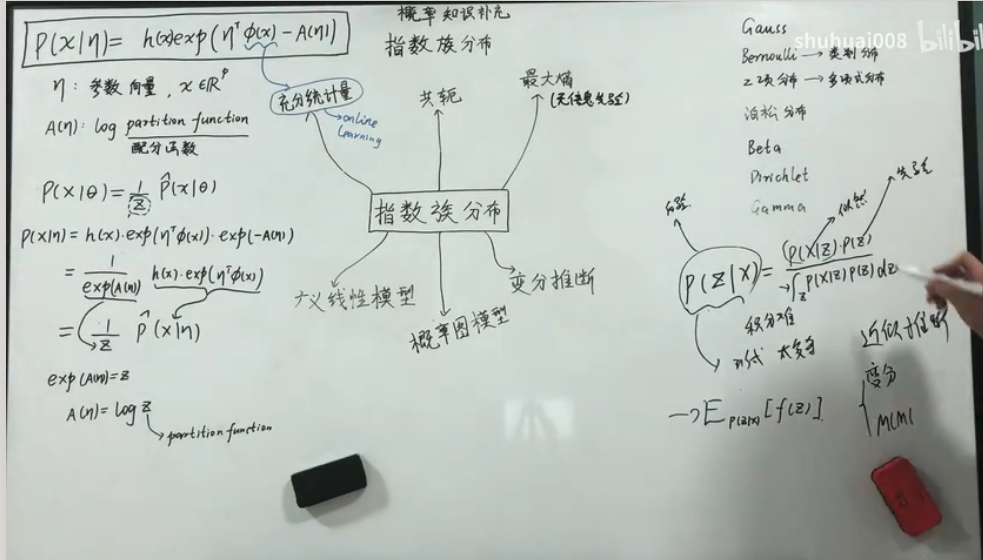 概率知识补充
指数族分布
P(x|η) = h(x) exp(η^T φ(x) - A(η))
η: 参数向量, x ∈ R^p
A(η): log partition function
配分函数
P(x|θ) = 1/z p̂(x|θ)
P(x|η) = h(x)·exp(η^T φ(x))·exp(-A(η))
= 1/exp(A(η)) h(x)·exp(η^T φ(x))
= 1/z p̂(x|η)
exp(A(η)) = z
A(η) = log z
→ partition function
充分统计量
→ online
learning
共轭
最大熵
(无信息先验)
指数族分布
广义线性模型
概率图模型
变分推断
shuhuai008 bilibili
Gauss
Bernoulli → 类别分布
二项分布 → 多项式分布
泊松分布
Beta
Dirichlet
Gamma
后验
似然
先验
P(z|x) = P(x|z)·P(z) / ∫_z P(x|z) P(z) dz
积分难
形式太复杂
→ E_{P(z|x)} [f(z)]
近似推断
变分
MCMC